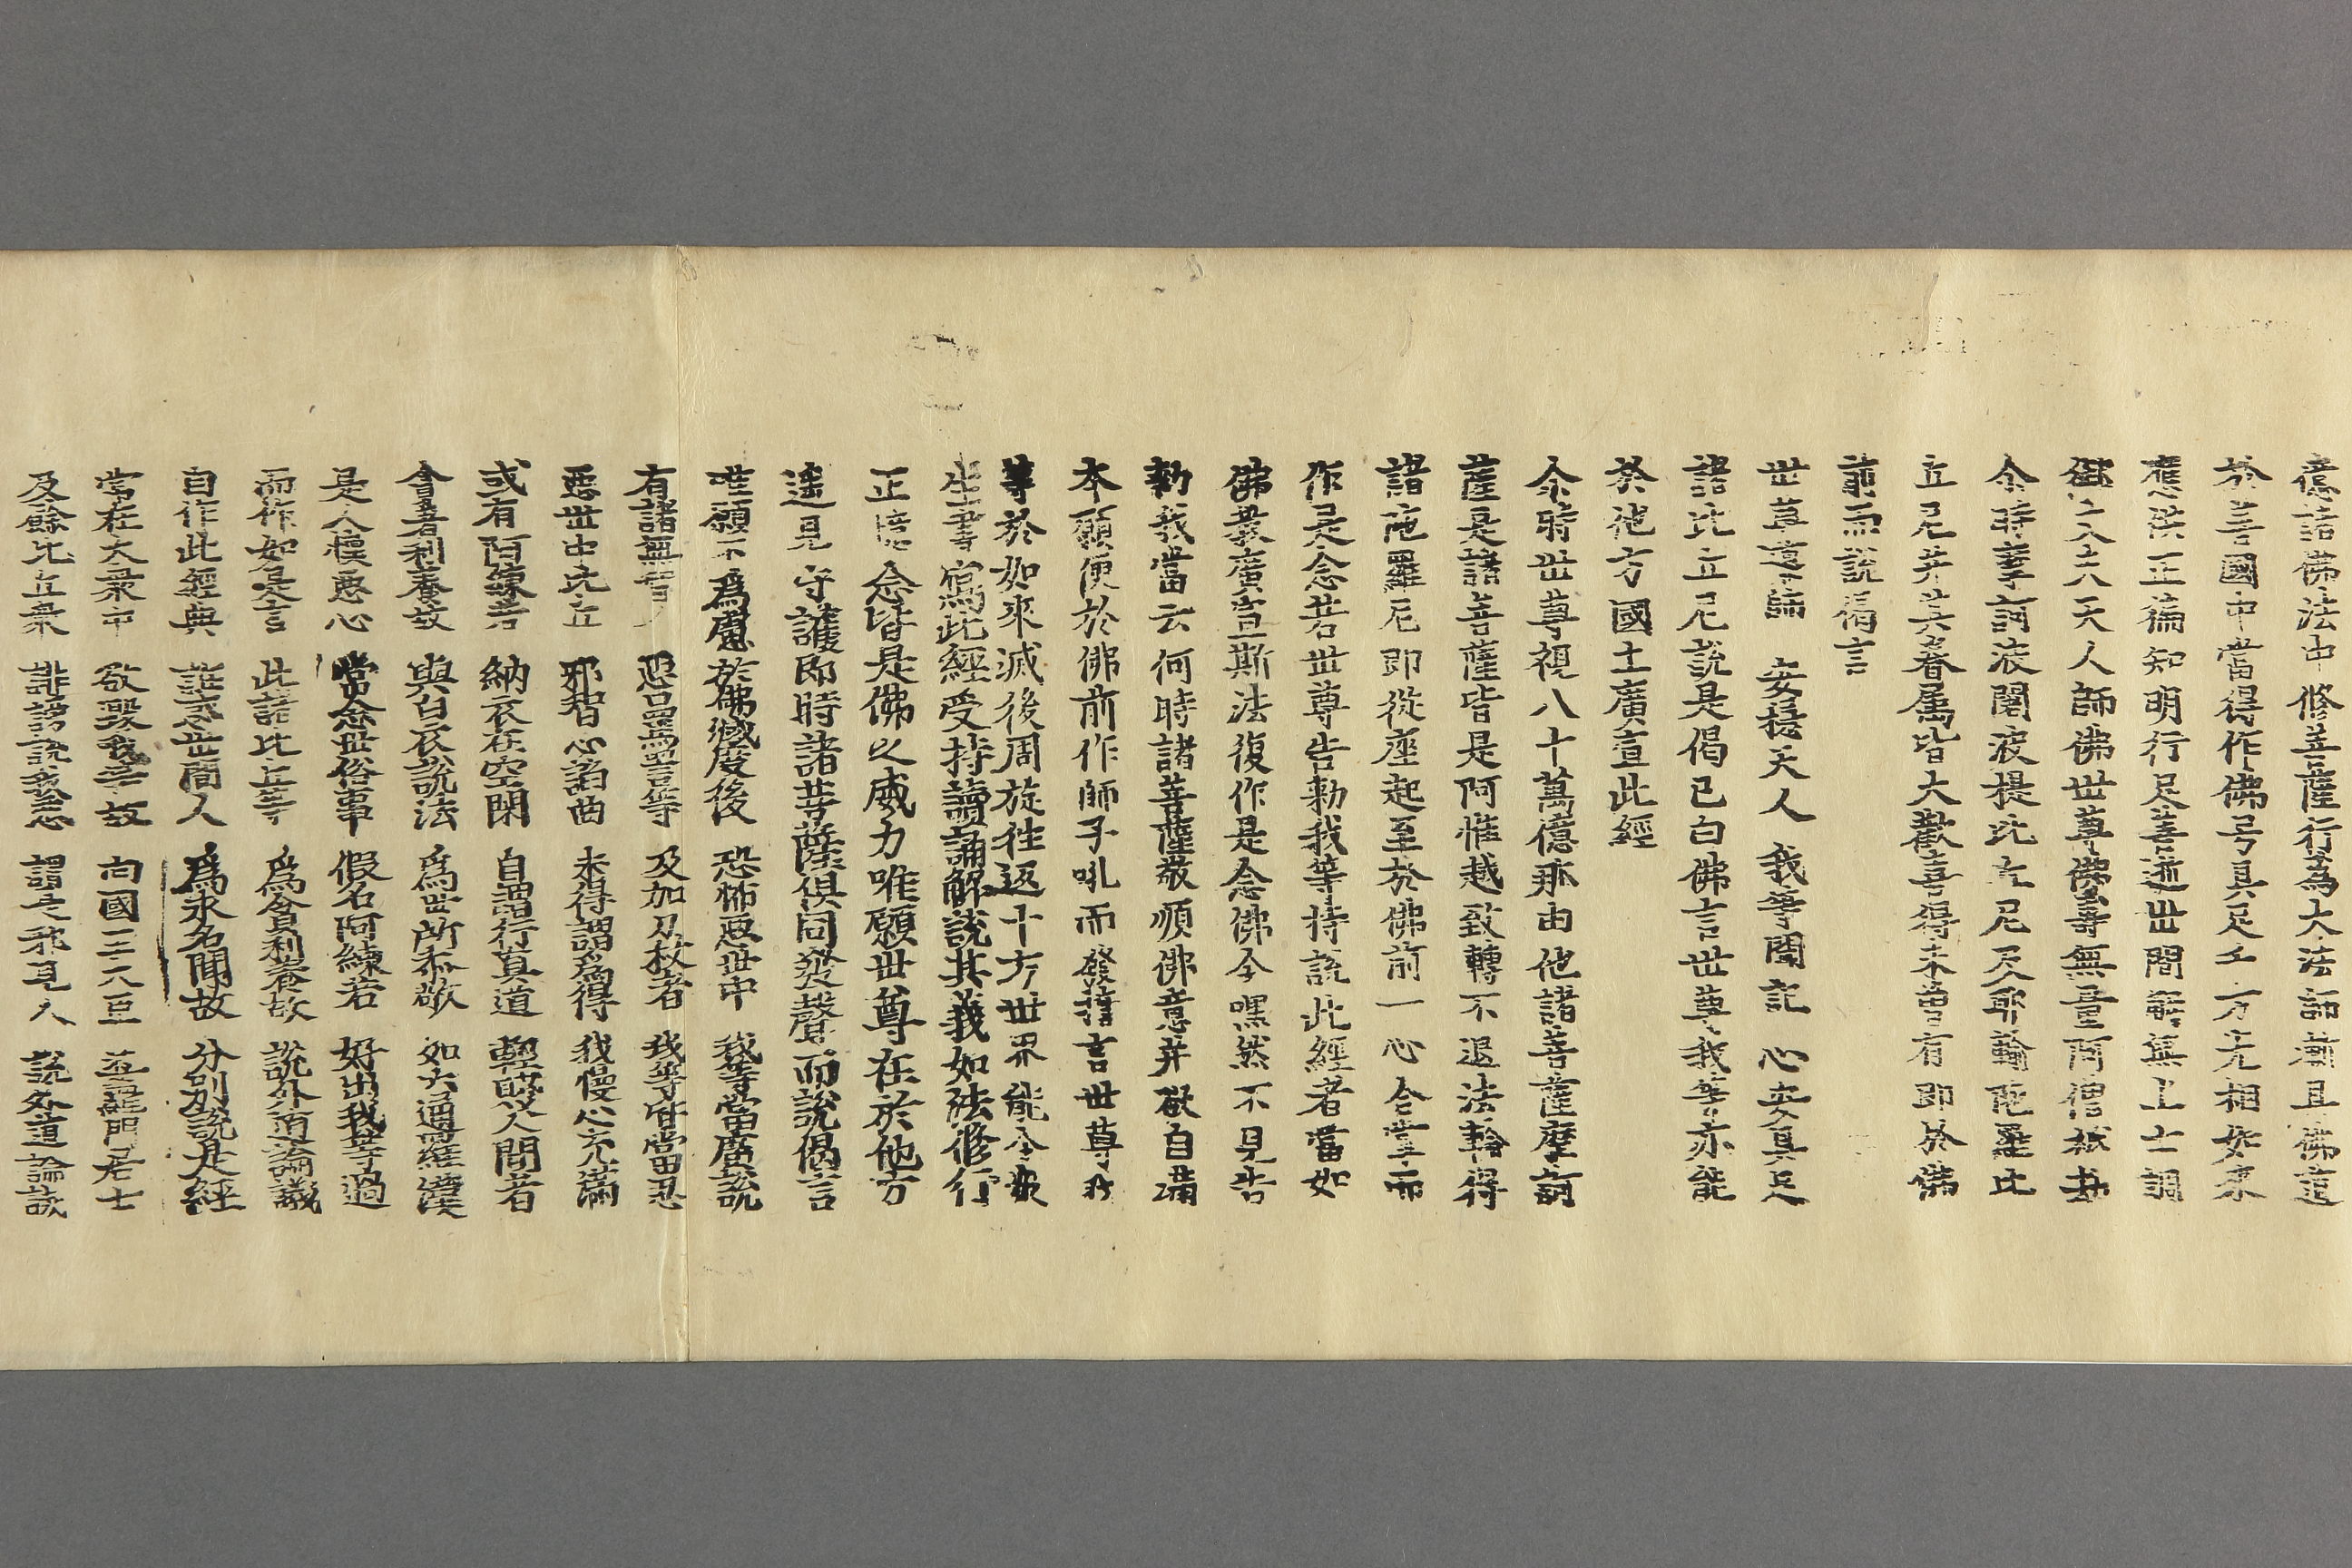 億諸佛法中修菩薩行為大法師漸具佛道
於善國中當得作佛号具足千万光相如来
應供正徧知明行足善逝世間解無上士調
御丈夫天人師佛世尊佛壽無量阿僧祇劫
尒時摩訶波闍波提比丘尼及耶輸陁羅比
丘尼并其眷属皆大歡喜得未曾有即於佛
前而說偈言
世尊導師　安穏天人　我等聞記　心安具足
諸比丘尼說是偈已白佛言世尊我等亦能
於他方國土廣宣此經
尒時世尊視八十萬億那由他諸菩薩摩訶
薩是諸菩薩皆是阿惟越致轉不退法輪得
諸陁羅尼即從座起至於佛前一心合掌而
作是念若世尊告勑我等持說此經者當如
佛教廣宣斯法復作是念佛今嘿然不見告
勑我當云何時諸菩薩敬順佛意并欲自滿
本願便於佛前作師子吼而發誓言世尊我
等於如來滅後周旋往返十方世界能令衆
生書寫此經受持讀誦解說其義如法修行
正憶念皆是佛之威力唯願世尊在於他方
遙見守護即時諸菩薩俱同發聲而說偈言
唯願不爲慮　於佛滅度後　恐怖惡世中　我等當廣說
有諸無智人　惡口罵詈等　及加刀杖者　我等皆當忍
惡世中比丘　邪智心諂曲　未得謂爲得　我慢心充滿
或有阿練若　納衣在空閑　自謂行真道　輕賤人間者
貪著利養故　與白衣說法　爲世所恭敬　如六通羅漢
是人懷惡心　常念世俗事　假名阿練若　好出我等過
而作如是言　此諸比丘等　爲貪利養故　說外道論議
自作此經典　誑惑世間人　爲求名聞故　分別說是經
常在大衆中　欲毀我等故　向國王大臣　婆羅門居士
及餘比丘衆　誹謗說我惡　謂是邪見人　說外道論議